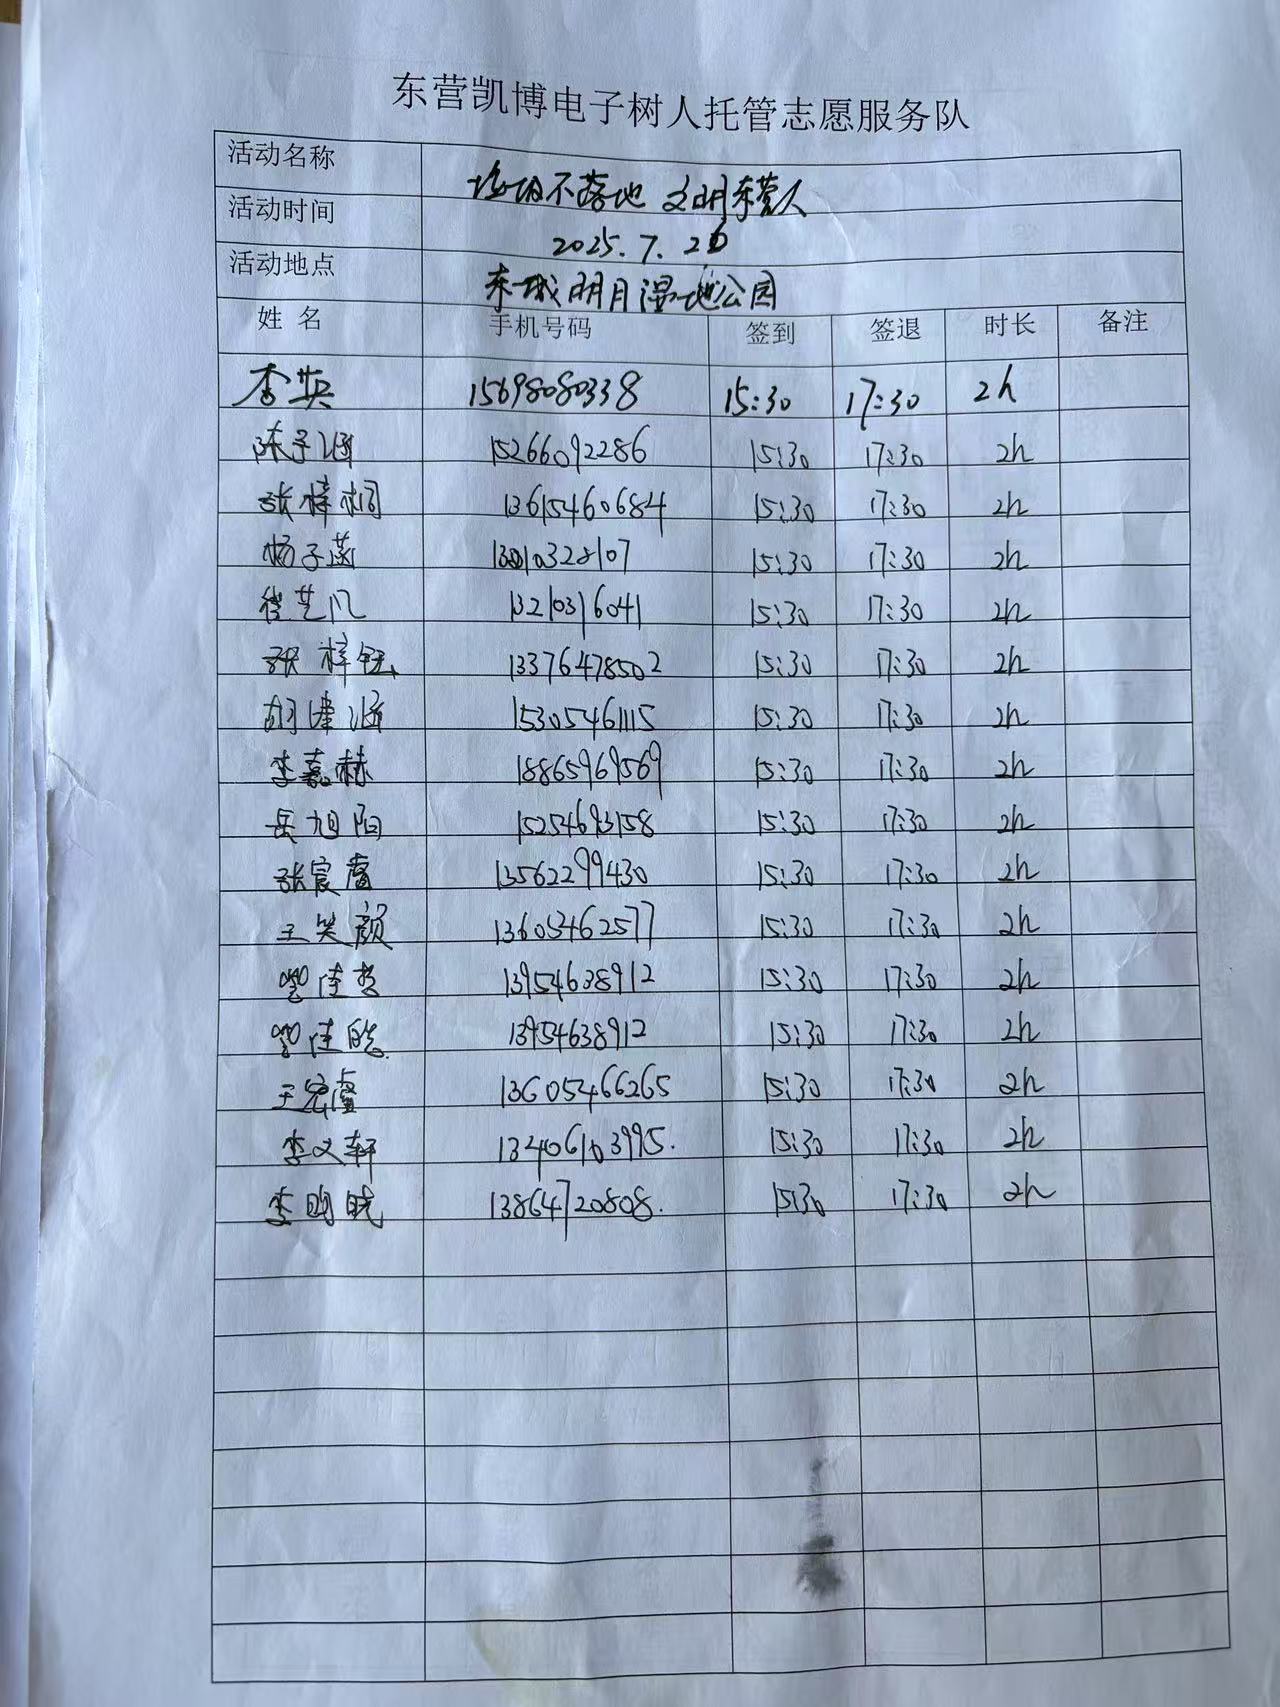 东营凯博电子树人托管志愿服务队
活动名称 垃圾不落地 文明东营人
活动时间 2025.7.26
活动地点 东城明月湿地公园
姓名 手机号码 签到 签退 时长 备注
李英 15698080338 15:30 17:30 2h
陈子涵 15266092286 15:30 17:30 2h
张梓桐 13615460684 15:30 17:30 2h
杨子菡 15:30 17:30 2h
徐艺凡 13210316041 15:30 17:30 2h
张梓钰 13376478502 15:30 17:30 2h
胡津涵 15305461115 15:30 17:30 2h
李嘉赫 18865969569 15:30 17:30 2h
岳旭阳 15254693158 15:30 17:30 2h
张宸睿 13562299430 15:30 17:30 2h
王笑颜 13605462577 15:30 17:30 2h
13954638912 15:30 17:30 2h
13954638912 15:30 17:30 2h
王宏睿 13605466265 15:30 17:30 2h
李文轩 13406103995. 15:30 17:30 2h
李明晓 13864720808. 15:30 17:30 2h